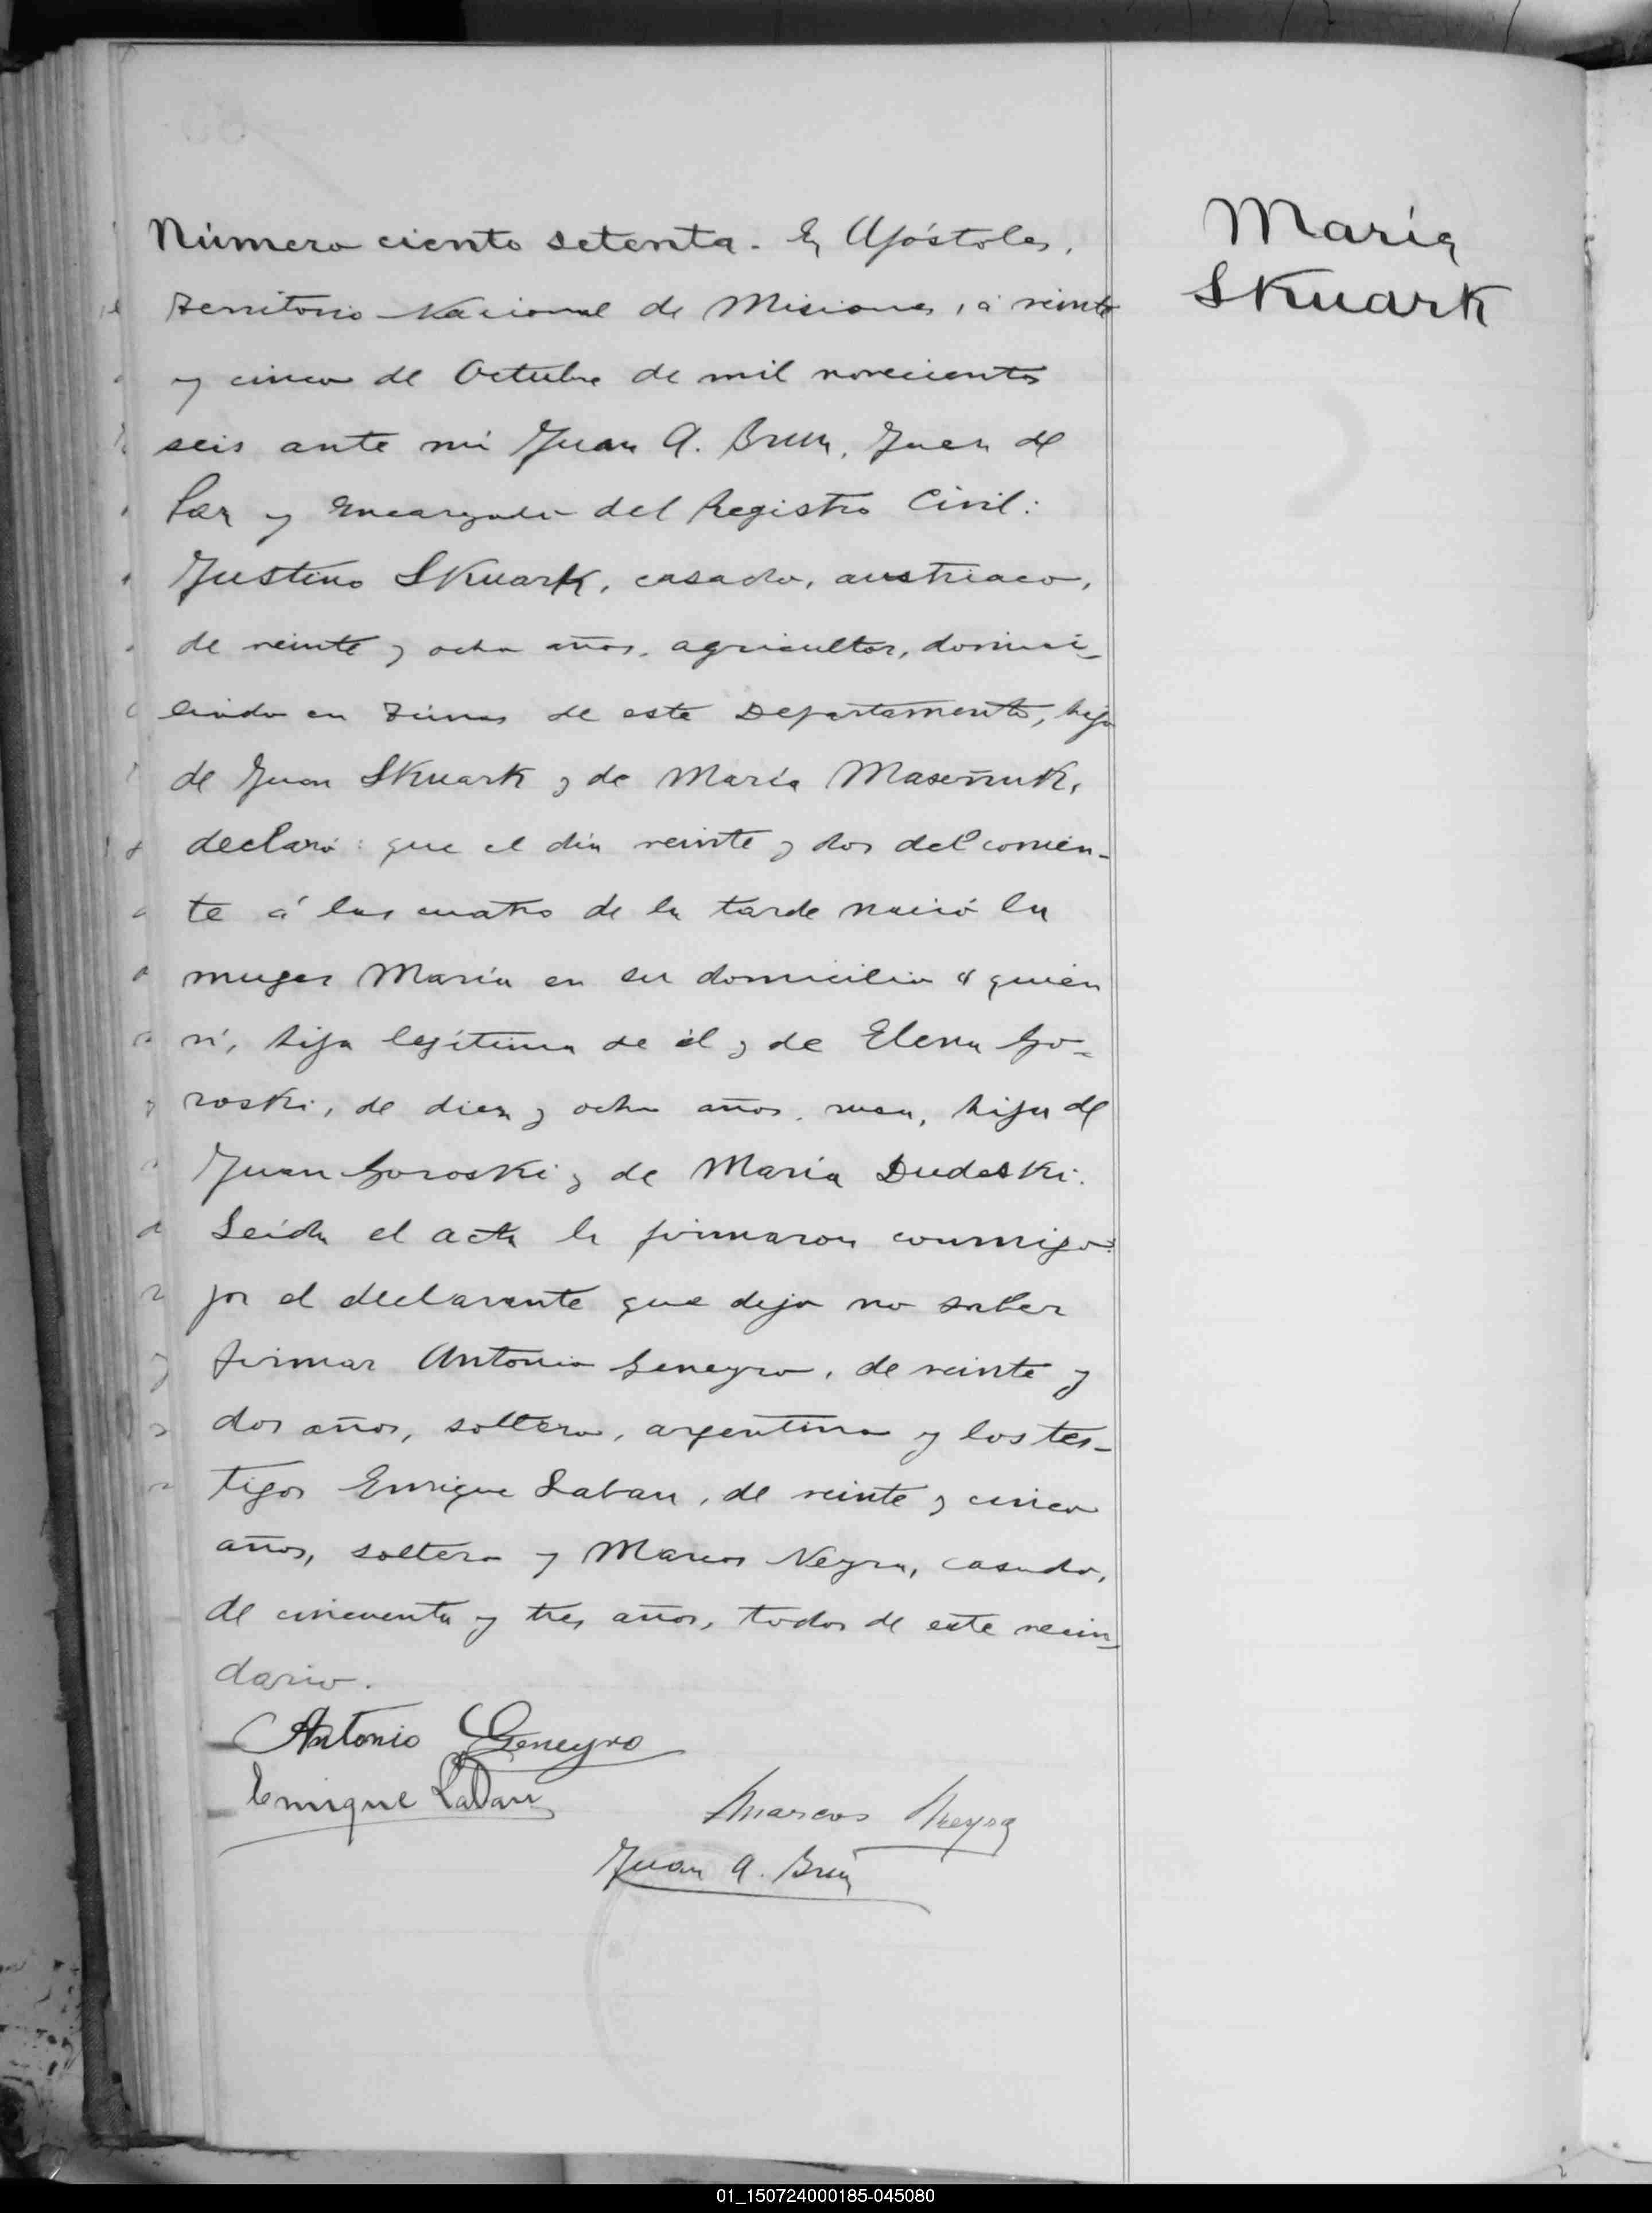 Número ciento setenta. En Apóstoles,
territorio Nacional de Misiones, á veinte
y cinco de Octubre de mil novecientos
seis ante mi Juan A. Brun, Juez de
Paz y Encargado del Registro Civil:
Justino Skuark, casado, austriaco,
de veinte y ocho años, agricultor, domici-
liado en de este Departamento, hijo
de Juan Skuark y de María
declaró: que el día veinte y dos del corrien-
te á las cuatro de la tarde nació la
muger María en su domicilio á quien
ví, hija legítima de él y de Elena Go-
roski, de diez y ocho años, rusa, hija de
Juan Goroski y de María Dudeski.
Leída el acta la firmaron conmigo:
por el declarante que dijo no saber
firmar Antonio Geneyro, de veinte y
dos años, soltero, argentino y los tes-
tigos Enrique Laban, de veinte y cinco
años, soltero y Marcos Neyra, casado,
de cincuenta y tres años, todos de este vecin-
dario.
Antonio Geneyro
Enrique Laban
Marcos Neyra
Juan A. Brun
María
Skuark
01_150724000185-045080